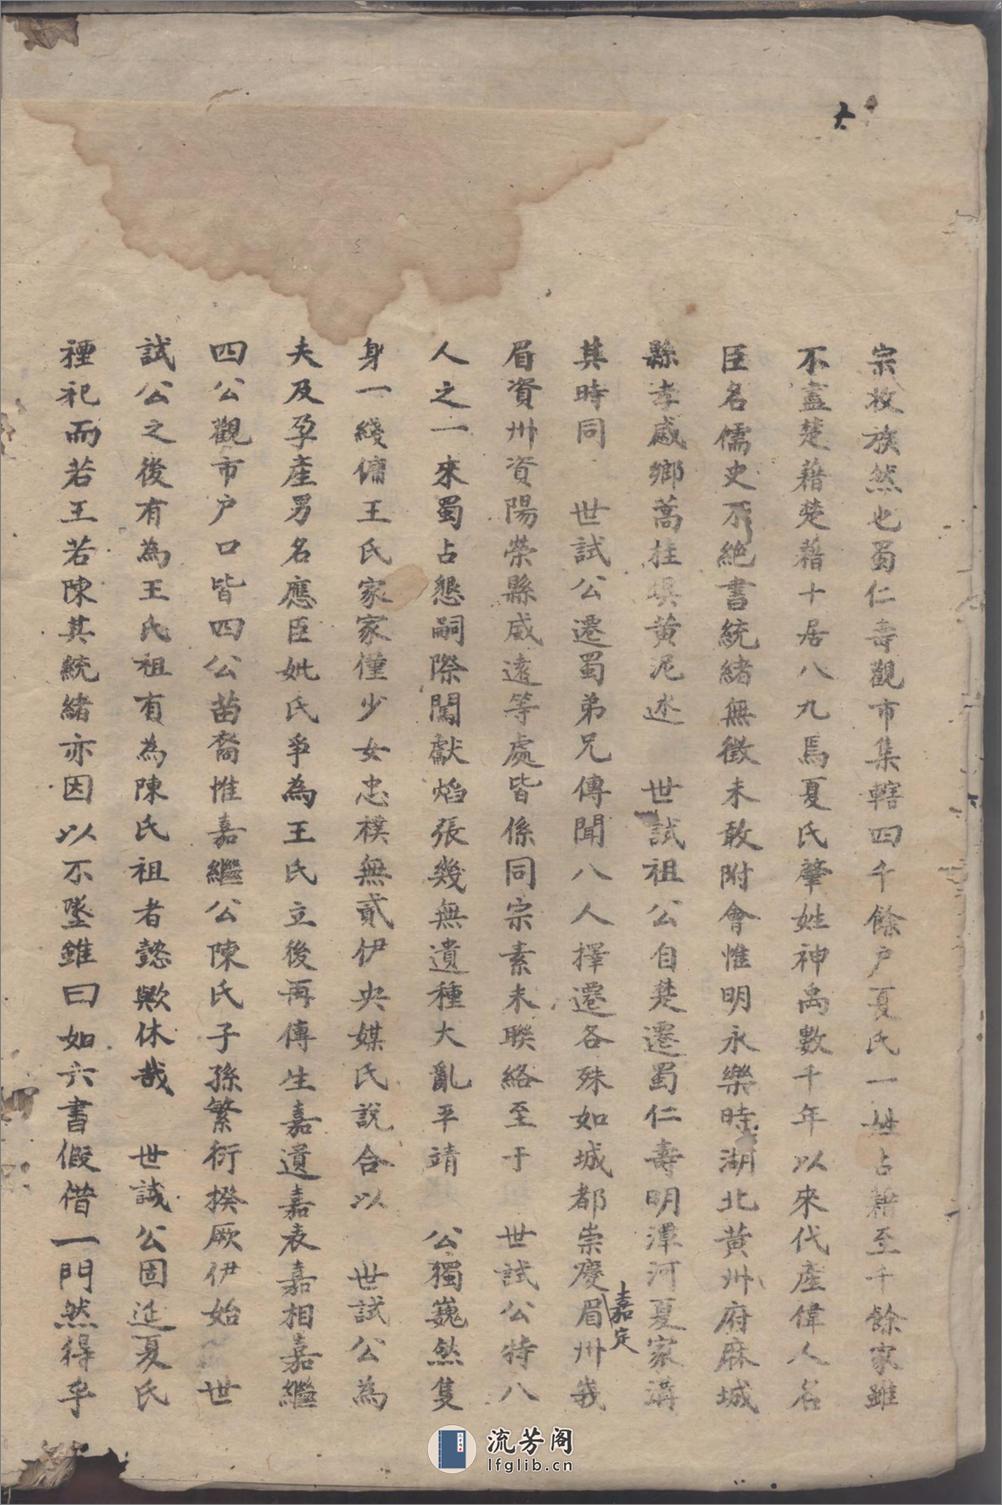 六
宗枚族然也蜀仁壽觀市集轄四千餘户夏氏一姓占籍至千餘家雖
不盡楚藉楚藉十居八九焉夏氏肇姓神禹數千年以來代產偉人名
臣名儒史不絶書統緒無徴未敢附會惟明永樂時湖北黄州府麻城
縣孝感鄉蒿挂垻黄泥述 世試祖公自楚遷蜀仁壽明潭河夏家溝
其時同 世試公遷蜀弟兄傳聞八人擇遷各殊如城都崇慶眉州我
嘉定
眉資州資陽榮縣威遠等處皆係同宗素未聯絡至于 世試公特八
人之一來蜀占懇嗣際闖獻熖張幾無遺種大亂平靖 公獨巍然隻
身一綫傭王氏家家僅少女忠樸無貳伊央媒氏說合以 世試公為
夫及孕產男名應臣妣氏爭為王氏立後再傳生嘉遺嘉表嘉相嘉繼
四公觀市户口皆四公苗裔惟嘉繼公陳氏子孫繁衍揆厥伊始 世
試公之後有為王氏祖有為陳氏祖者懿歟休哉 世誠公固延夏氏
禋祀而若王若陳其統緒亦因以不墜錐曰如六書假借一門然得乎
流芳阁
lfglib.cn